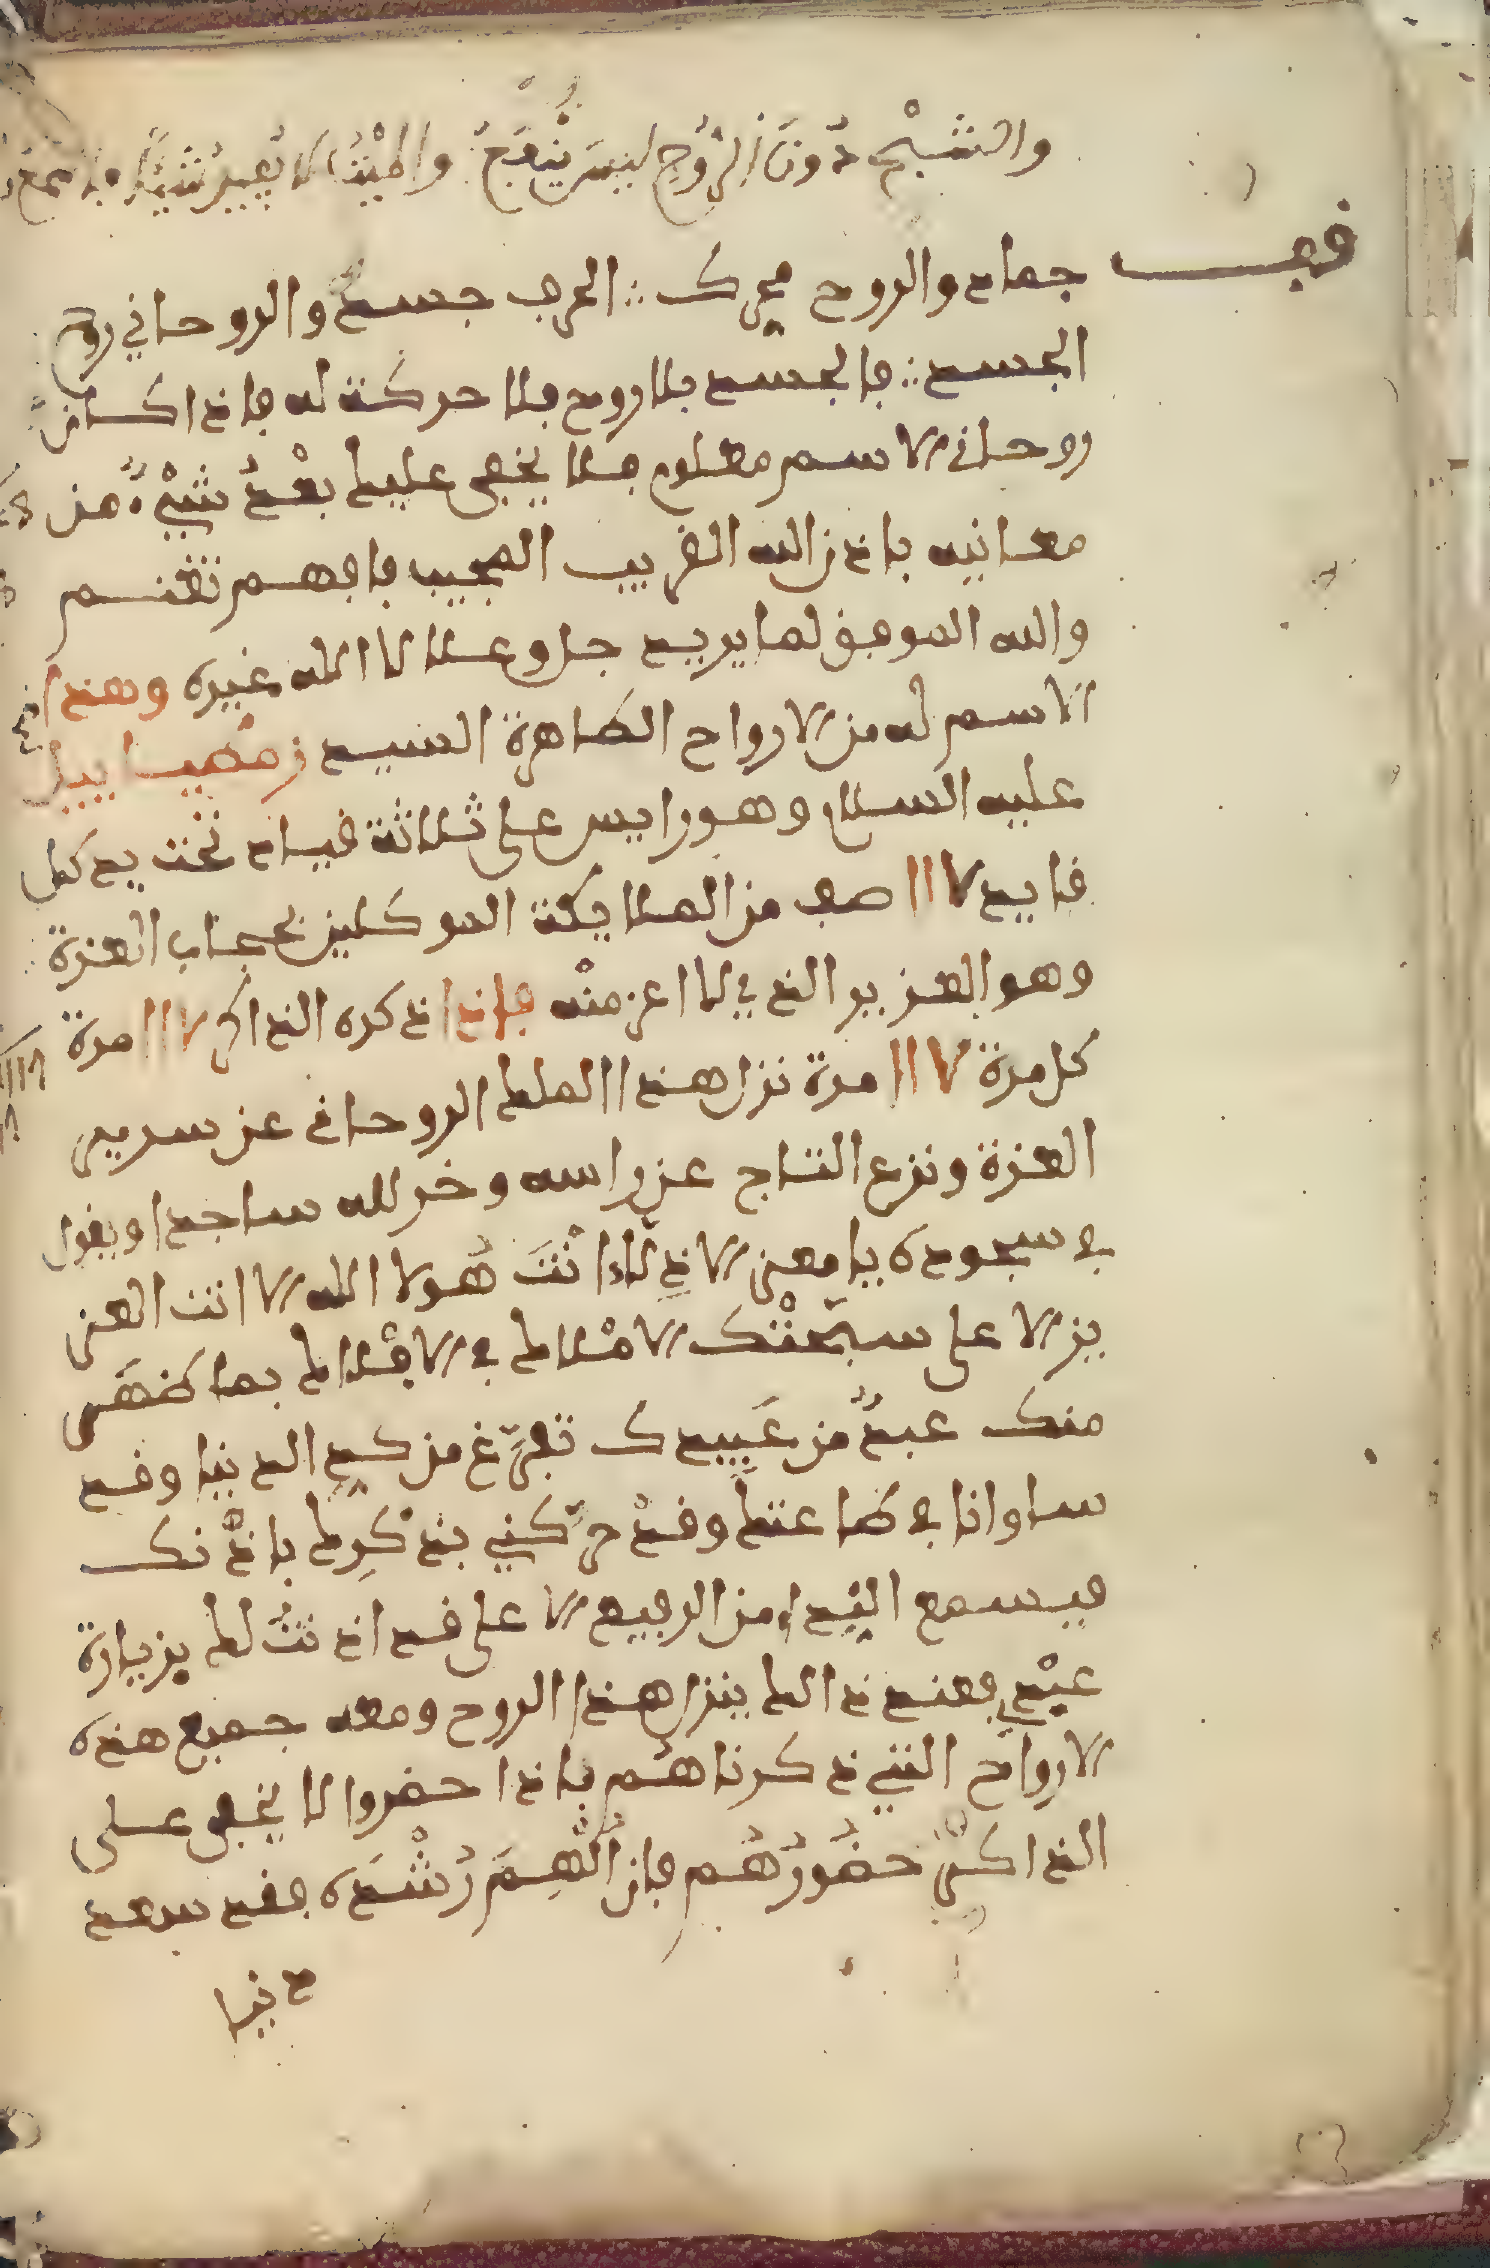 والشبح دون الروح ليس ينفع والميت لا يفيد شيئا
قف
جماد والروح محرك ∴ الحرف جسم والروحاني روح
الجسم ∴ فالجسم بلا روح فلا حركة له فاذا كان
روحاني الاسم معلوم فلا يخفى عليك بعد شيء من
معانيه باذن الله القريب المجيب فافهم تغنم
والله الموفق لما يريد جل وعلا لا اله غيره وهذا
الاسم له من الارواح الطاهرة السيد زمهيابيل
عليه السلام وهو رايس على ثلاثة قياد تحت يد كل
قايد ١١٧ صف من الملايكة الموكلين بحجاب العزة
وهو العزيز الذي لا اعز منه فاذا ذكره الذاكر ١١٧ مرة
كل مرة ١١٧ مرة نزل هذا الملك الروحاني عن سرير
العزة ونزع التاج عن راسه وخر لله ساجدا ويقول
في سجوده يا معز الاذلاء انت هو لا اله الا انت العز
يز الاعلى سبحتك الاملاك في الافلاك بما ظهر
منك عبد من عبيدك تفرغ من كد الدنيا وقد
ساوانا في طاعتك وقد حركني بذكرك باذنك
فيسمع النداء من الرفيع الاعلى قد اذنت لك بزيارة
عبدي فعند ذالك ينزل هذا الروح ومعه جميع هذه
الارواح التي ذكرناهم فاذا حضروا لا يخفى على
الذاكر حضورهم فان الهم رشده فقد سعد
دنيا